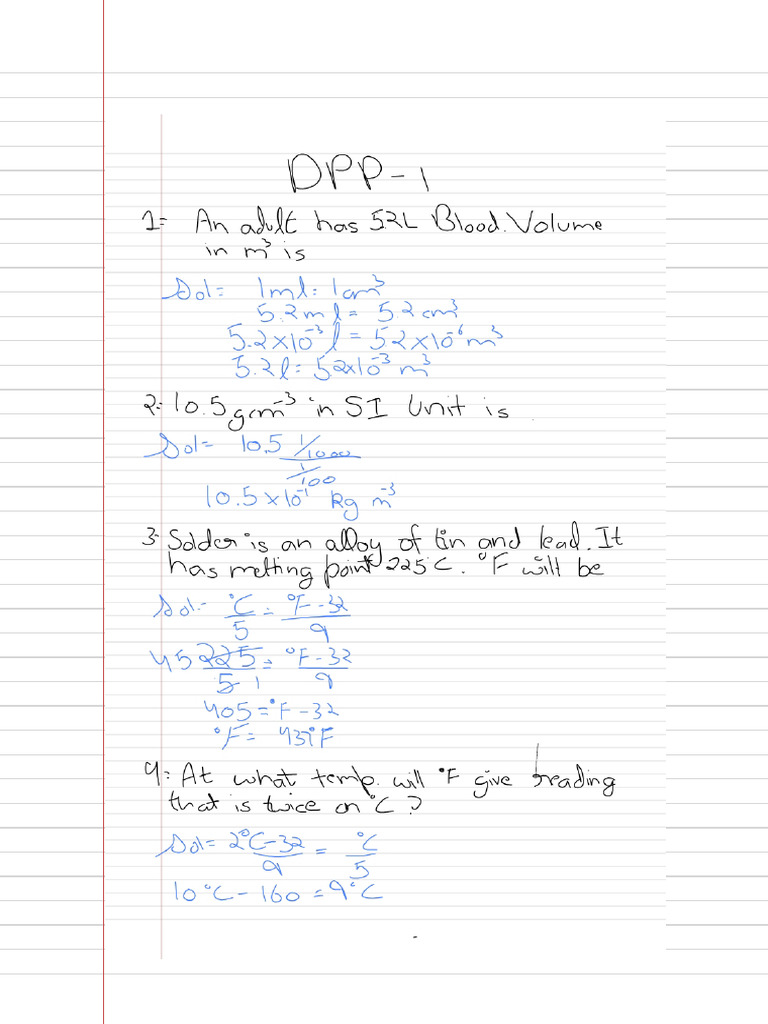 DPP-1
1= An adult has 5.2L Blood. Volume
in m³ is
Sol= 1ml = 1cm³
5.2ml = 5.2cm³
5.2×10⁻³l = 5.2×10⁻⁶m³
5.2l = 5.2×10⁻³m³
2= 10.5gcm⁻³ in SI Unit is
Sol= 10.5 1/1000
1/100
10.5×10⁻¹ kg m⁻³
3. Solder is an alloy of tin and lead. It
has melting point 225°C. °F will be
Sol= °C/5 = °F-32/9
45 225/5 1 = °F-32/9
405 = °F-32
°F = 437°F
4= At what temp. will °F give reading
that is twice on °C?
Sol= 2°C-32/9 = °C/5
10°C-160 = 9°C